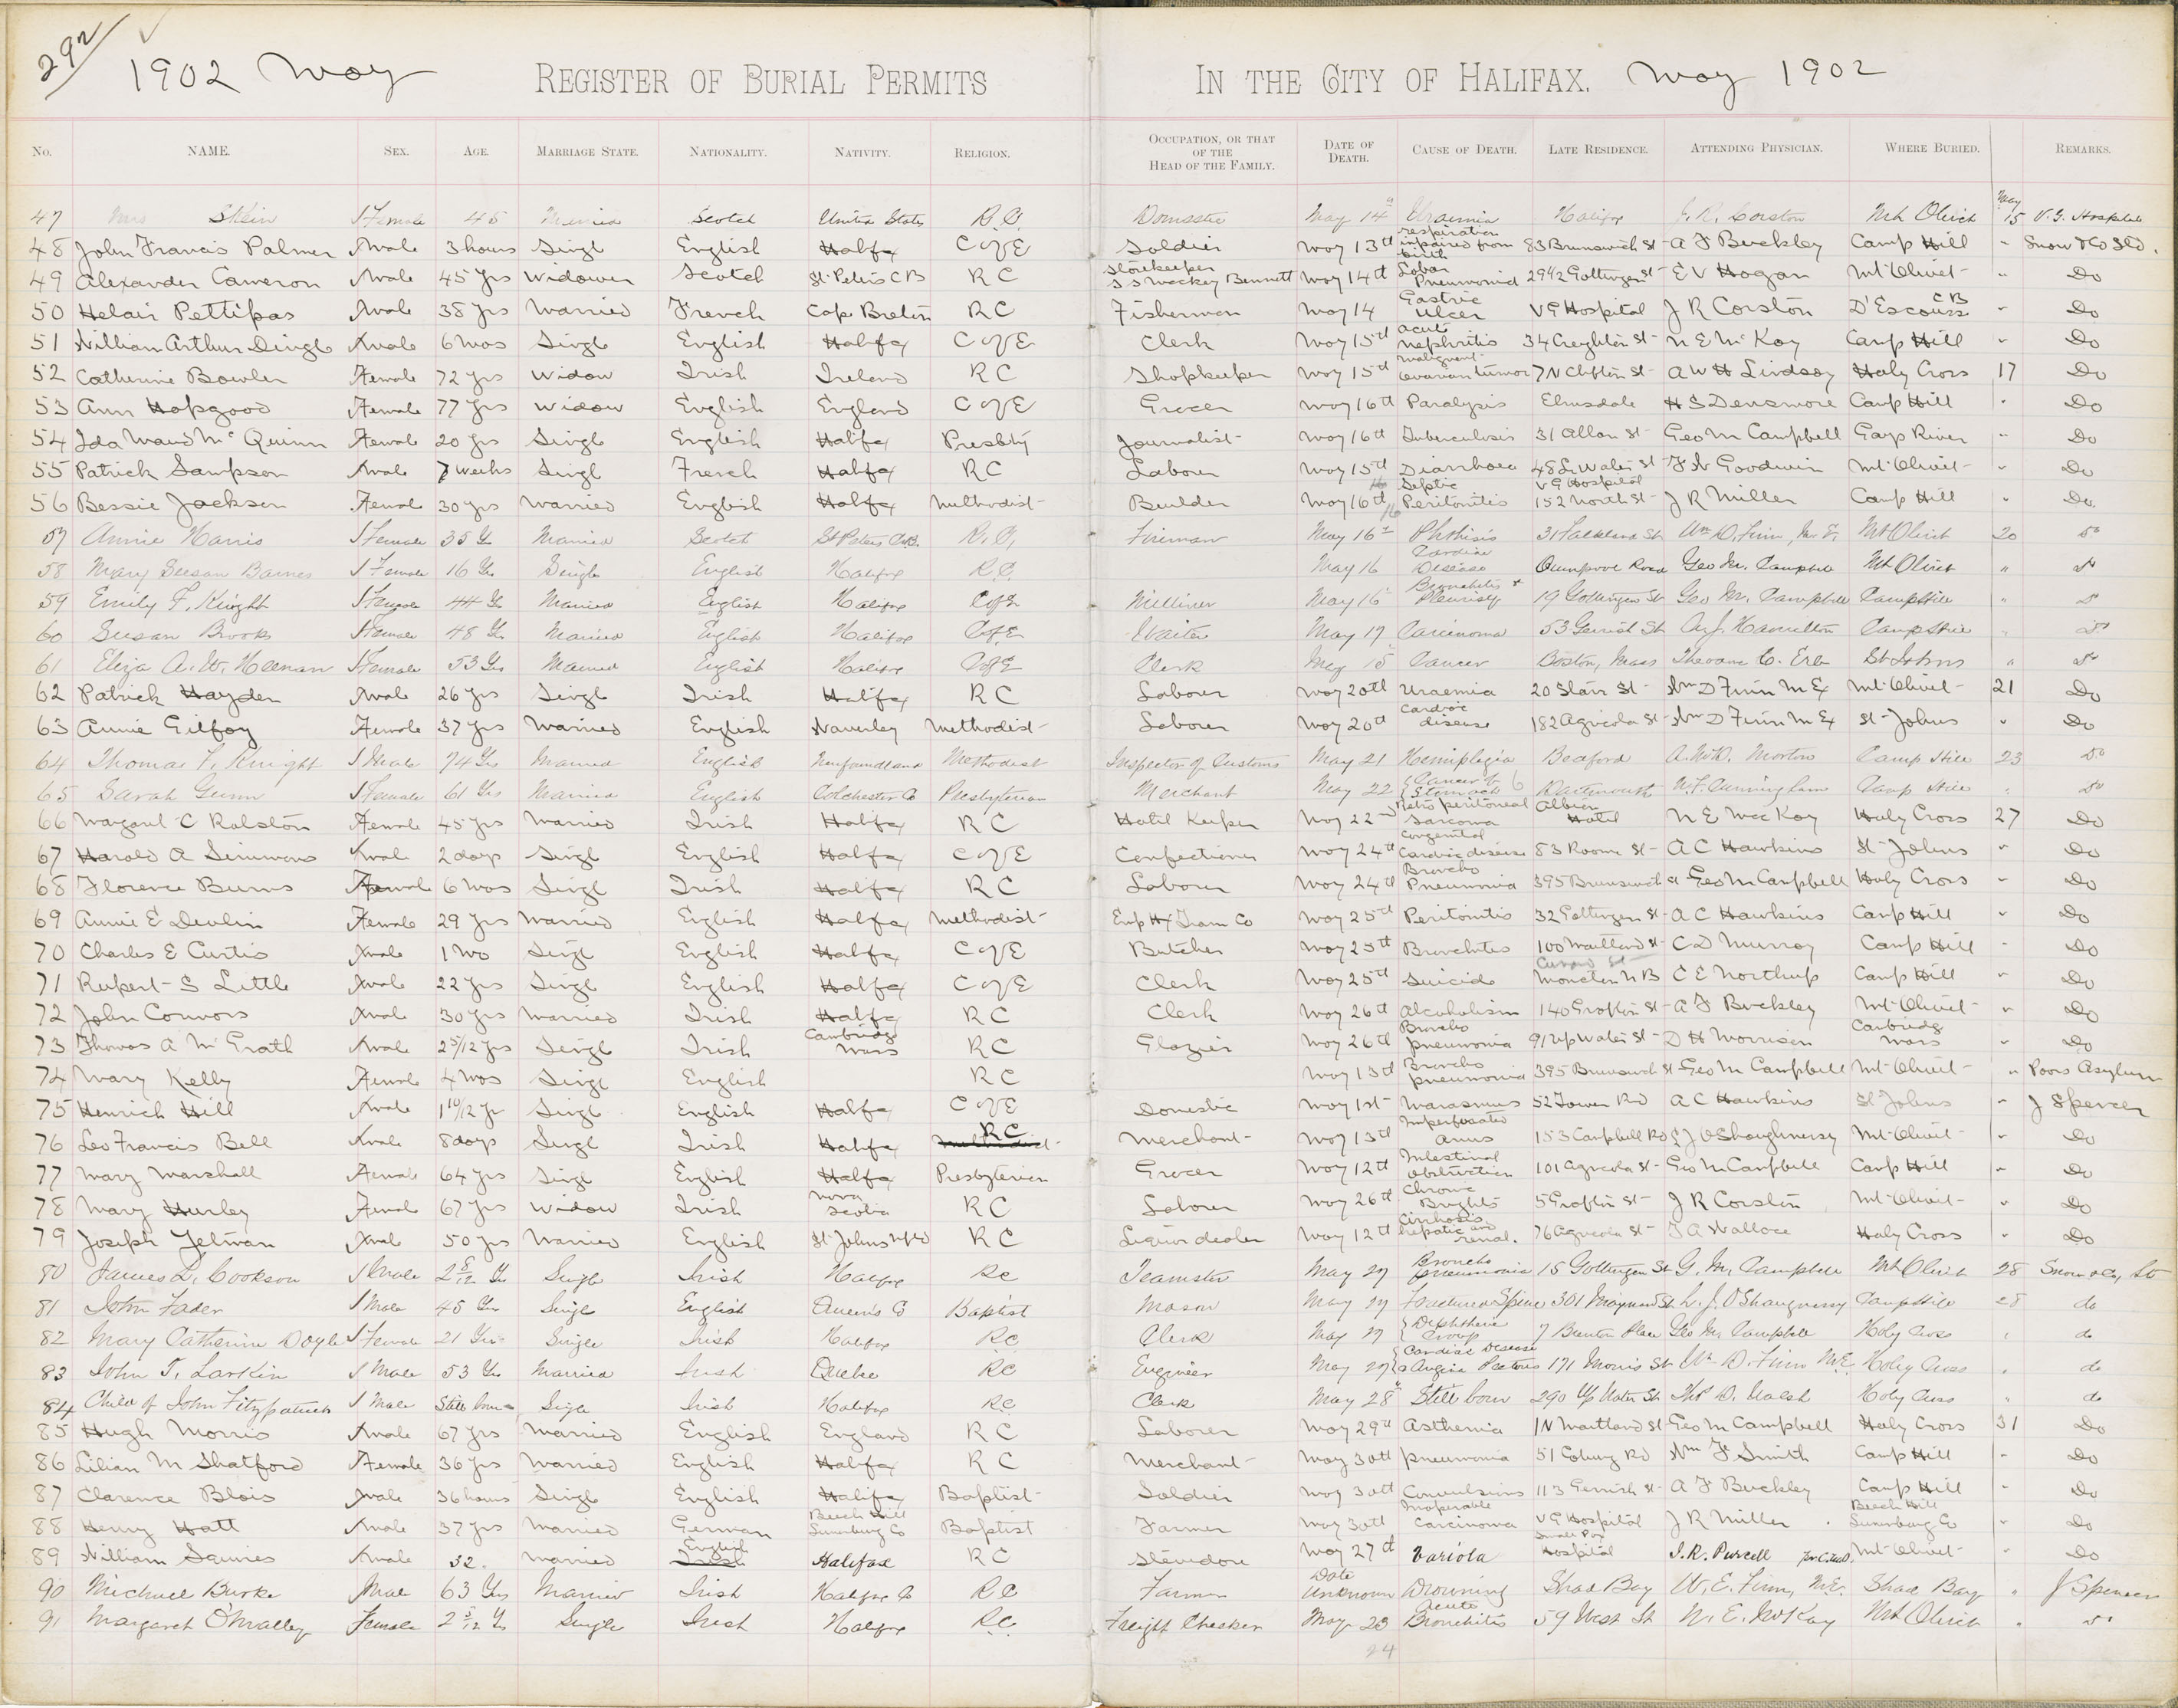 292
1902 May REGISTER OF BURIAL PERMITS IN THE CITY OF HALIFAX. May 1902
No. NAME. SEX. AGE. MARRIAGE STATE. NATIONALITY. NATIVITY. RELIGION. OCCUPATION, OR THAT OF THE HEAD OF THE FAMILY. DATE OF DEATH. CAUSE OF DEATH. LATE RESIDENCE. ATTENDING PHYSICIAN. WHERE BURIED. REMARKS.
47 Mrs Stein Female 45 Married Scotch United States R.C. Domestic May 14th Uraemia Halifax J. R. Corston Mt Olivet May 15 V.G. Hospital
48 John Francis Palmer Male 3 hours Single English Halifax C of E Soldier May 13th respiration impaired from birth 83 Brunswick St A F Buckley Camp Hill " Snow & Co Ltd.
49 Alexander Cameron Male 45 yrs Widower Scotch St Peters C B R C Storekeeper S S Mackey Bennett May 14th Lobar Pneumonia 29 1/2 Gottingen St E V Hogan Mt Olivet " Do
50 Helair Pettipas Male 38 yrs Married French Cape Breton R C Fisherman May 14 Gastric Ulcer V G Hospital J R Corston D'Escousse C B " Do
51 William Arthur Dingle Male 6 mos Single English Halifax C of E Clerk May 15th acute nephritis 34 Creighton St N E McKay Camp Hill " Do
52 Catherine Bowler Female 72 yrs Widow Irish Ireland R C Shopkeeper May 15th malignant Ovarian tumor 7 N Clifton St A W H Lindsay Holy Cross 17 Do
53 Ann Hopgood Female 77 yrs Widow English England C of E Grocer May 16th Paralysis Elmsdale H S Densmore Camp Hill " Do
54 Ida Maud McQuinn Female 20 yrs Single English Halifax Presbty Journalist May 16th Tuberculosis 31 Allan St Geo M Campbell Gays River " Do
55 Patrick Sampson Male 7 weeks Single French Halifax R C Laborer May 15th Diarrhoea 48 L Water St F W Goodwin Mt Olivet " Do
56 Bessie Jackson Female 30 yrs Married English Halifax Methodist Builder May 16th Septic Peritonitis V G Hospital 152 North St J R Miller Camp Hill " Do
57 Annie Harris Female 35 Ys Married Scotch St Peters C.B. R.C. Fireman May 16th Phthisis 31 Falkland St Wm D. Finn, M.E. Mt Olivet 20 Do
58 Mary Susan Barnes Female 16 Ys Single English Halifax R.C. May 16 Cardiac Disease Quinpool Road Geo M. Campbell Mt Olivet " Do
59 Emily F. Knight Female 44 Ys Married English Halifax C of E Milliner May 16 Bronchitis + Pleurisy 19 Gottingen St Geo M. Campbell Camp Hill " Do
60 Susan Brooks Female 48 Ys Married English Halifax C of E Waiter May 17 Carcinoma 53 Gerrish St A. J. Hamilton Camp Hill " Do
61 Eliza A. W. Heenan Female 53 Ys Married English Halifax C of E Clerk May 15 Cancer Boston, Mass C. Erb St Johns " Do
62 Patrick Hayden Male 26 yrs Single Irish Halifax R C Laborer May 20th Uraemia 20 Starr St Wm D Finn M E Mt Olivet 21 Do
63 Annie Gilfoy Female 37 yrs Married English Waverley Methodist Laborer May 20th Cardiac disease 182 Agricola St Wm D Finn M E St Johns " Do
64 Thomas F. Knight Male 74 Ys Married English Newfoundland Methodist Inspector of Customs May 21 Hemiplegia Bedford A. McD. Morton Camp Hill 23 Do
65 Sarah Gunn Female 61 Ys Married English Colchester Co Presbyterian Merchant May 22 Cancer of Stomach Dartmouth N. F. Cunningham Camp Hill " Do
66 Margaret C Ralston Female 45 yrs Married Irish Halifax R C Hotel Keeper May 22nd Retro peritoneal Sarcoma Albion Hotel N E MacKay Holy Cross 27 Do
67 Harold A Simmons Male 2 days Single English Halifax C of E Confectioner May 24th Congenital Cardiac disease 83 Roome St A C Hawkins St Johns " Do
68 Florence Burns Female 6 mos Single Irish Halifax R C Laborer May 24th Broncho Pneumonia 395 Brunswick St Geo M Campbell Holy Cross " Do
69 Annie E Devlin Female 29 yrs Married English Halifax Methodist Emp Hx Tram Co May 25th Peritonitis 32 Gottingen St A C Hawkins Camp Hill " Do
70 Charles E Curtis Male 1 mo Single English Halifax C of E Butcher May 25th Bronchitis 100 Maitland St C D Murray Camp Hill " Do
71 Rupert S Little Male 22 yrs Single English Halifax C of E Clerk May 25th Suicide Cunard St Moncton N B C E Northup Camp Hill " Do
72 John Connors Male 30 yrs Married Irish Halifax R C Clerk May 26th Alcoholism 140 Grafton St A F Buckley Mt Olivet " Do
73 Thomas A McGrath Male 2 5/12 yrs Single Irish Cambridge Mass R C Glazier May 26th Broncho pneumonia 91 Up Water St D H Morrison Cambridge Mass " Do
74 Mary Kelly Female 4 mos Single English R C May 13th Broncho pneumonia 395 Brunswick St Geo M Campbell Mt Olivet " Poors Asylum
75 Henrich Hill Male 1 10/12 yr Single English Halifax C of E Domestic May 1st Marasmus 52 Tower Rd A C Hawkins St Johns " J Spencer
76 Leo Francis Bell Male 8 days Single Irish Halifax R C Merchant May 13th Imperforated Anus 153 Campbell Rd J O'Shaughnessy Mt Olivet " Do
77 Mary Marshall Female 64 yrs Single English Halifax Presbyterian Grocer May 12th Intestinal Obstruction 101 Agricola St Geo M Campbell Camp Hill " Do
78 Mary Hurley Female 67 yrs Widow Irish Nova Scotia R C Laborer May 26th Chronic Brights 5 Grafton St J R Corston Mt Olivet " Do
79 Joseph Yetman Male 50 yrs Married English St Johns Nfld R C Liquor dealer May 12th Cirrhosis hepatic an renal. 76 Agricola St T A Wallace Holy Cross " Do
80 James L. Cookson Male 2 8/12 Ys Single Irish Halifax RC Teamster May 27 Broncho pneumonia 15 Gottingen St G. M. Campbell Mt Olivet 28 Snow & Co, Ltd
81 John Fader Male 45 Ys Single English Queens Co Baptist Mason May 27 Fractured Spine 301 Maynard St L. J. O'Shaugnessy Camp Hill 28 do
82 Mary Catherine Doyle Female 21 Ys Single Irish Halifax RC Clerk May 27 Diphtheric Croup 7 Brenton Place Geo M. Campbell Holy Cross " do
83 John T. Larkin Male 53 Ys Married Irish Quebec RC Engineer May 27 Cardiac Disease a Angina Pectoris 171 Morris St Wm D. Finn M.E. Holy Cross " do
84 Child of John Fitzpatrick Male Still born Single Irish Halifax RC Clerk May 28th Still born 290 Up Water St Thos D. Walsh Holy Cross " do
85 Hugh Morris Male 67 yrs Married English England R C Laborer May 29th Asthenia 1 N Maitland St Geo M Campbell Holy Cross 31 Do
86 Lilian M Shatford Female 36 yrs Married English Halifax R C Merchant May 30th pneumonia 51 Coburg Rd Wm F Smith Camp Hill " Do
87 Clarence Blois Male 36 hours Single English Halifax Baptist Soldier May 30th Convulsions 113 Gerrish St A F Buckley Camp Hill " Do
88 Henry Hatt Male 37 yrs Married German Beech Hill Lunenburg Co Baptist Farmer May 30th Inoperable carcinoma V G Hospital J R Miller Beech Hill Lunenburg Co " Do
89 William Squires Male 32. Married English Irish Halifax R C Stevedore May 27th Variola Small Pox Hospital I. R. Purcell Mt Olivet " Do
90 Michael Burke Male 63 Ys Married Irish Halifax Co RC Farmer Date Unknown Drowning Shad Bay W. E. Finn, M.E. Shad Bay " J Spencer
91 Margaret O'Malley Female 2 5/12 Ys Single Irish Halifax RC Freight Checker May 23 Acute Bronchitis 59 West St N. E. McKay Mt Olivet " Do
24